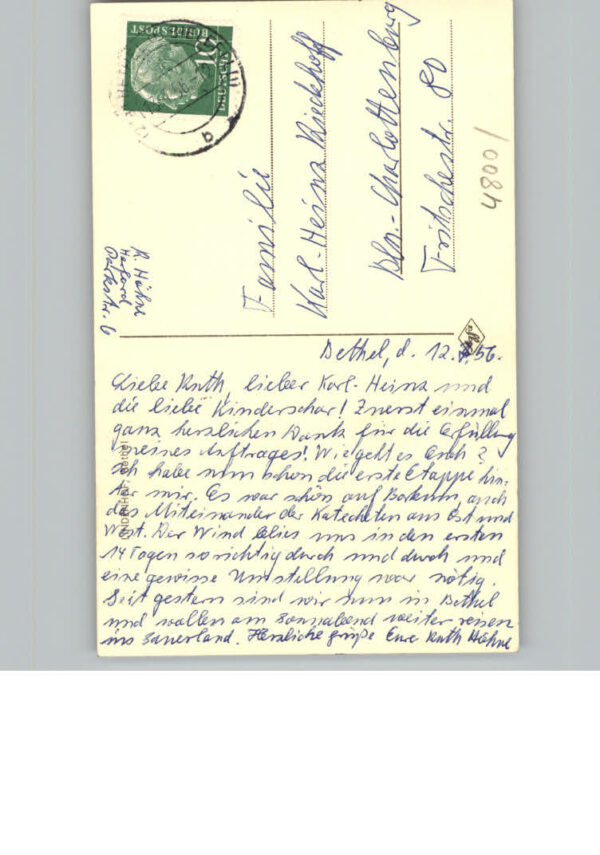 Bethel, d. 12. 56.
Liebe Ruth, lieber Karl-Heinz und
die liebe Kinderschar! Zuerst einmal
ganz herzlichen Dank für die Erfüllung
meines Auftrages! Wie geht es Euch?
Ich habe nun schon die erste Etappe hin-
ter mir. Es war schön auf Borkum, auch
das Miteinander der Katecheten aus Ost und
West. Der Wind blies uns in den ersten
14 Tagen so richtig durch und durch und
eine gewisse Umstellung war nötig.
Seit gestern sind wir nun in Bethel
und wollen am Sonnabend weiter reisen
ins Sauerland. Herzliche Grüße Eure Ruth Hähne
R. Hähne
Herford
Parkstr. 6
Familie
Karl-Heinz Rieckhoff
Bln.-Charlottenburg
Fritschestr. 80
4800/
DEUTSCHE
BUNDESPOST
10